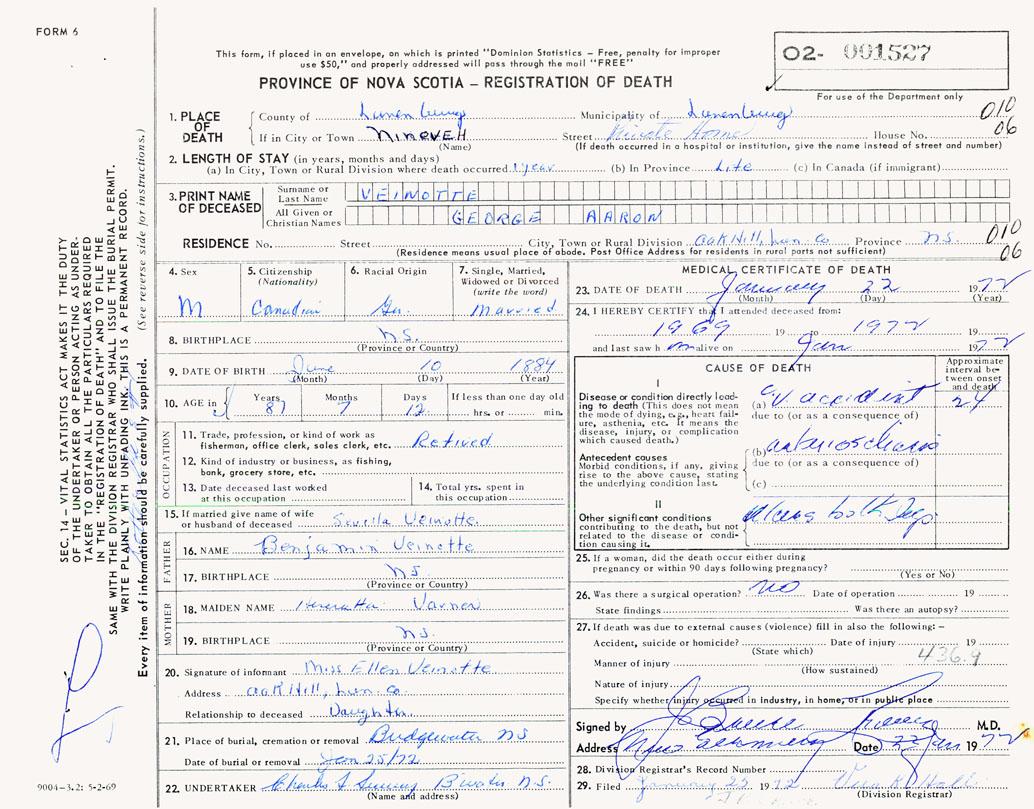 FORM 6
This form, if placed in an envelope, on which is printed "Dominion Statistics – Free, penalty for improper
use $50," and properly addressed will pass through the mail "FREE"
PROVINCE OF NOVA SCOTIA – REGISTRATION OF DEATH
02- 001527
For use of the Department only
1. PLACE OF DEATH
County of Lunenburg Municipality of Lunenburg 010
If in City or Town NINEVEH Street Private Home House No. 06
(Name) (If death occurred in a hospital or institution, give the name instead of street and number)
2. LENGTH OF STAY (in years, months and days)
(a) In City, Town or Rural Division where death occurred 1 year (b) In Province Life (c) In Canada (if immigrant)
3. PRINT NAME OF DECEASED
Surname or Last Name VEINOTTE
All Given or Christian Names GEORGE AARON
RESIDENCE No. Street City, Town or Rural Division Oak Hill, Lun Co Province N.S. 010
(Residence means usual place of abode. Post Office Address for residents in rural parts not sufficient) 06
4. Sex M
5. Citizenship (Nationality) Canadian
6. Racial Origin Ger.
7. Single, Married, Widowed or Divorced (write the word) Married
8. BIRTHPLACE N.S.
(Province or Country)
9. DATE OF BIRTH June 10 1884
(Month) (Day) (Year)
10. AGE in Years 87 Months 7 Days 12 If less than one day old
hrs. or min.
OCCUPATION
11. Trade, profession, or kind of work as
fisherman, office clerk, sales clerk, etc. Retired
12. Kind of industry or business, as fishing,
bank, grocery store, etc.
13. Date deceased last worked
at this occupation
14. Total yrs. spent in
this occupation
15. If married give name of wife
or husband of deceased Sevilla Veinotte
FATHER
16. NAME Benjamin Veinotte
17. BIRTHPLACE N.S.
(Province or Country)
MOTHER
18. MAIDEN NAME Varner
19. BIRTHPLACE N.S.
(Province or Country)
20. Signature of informant Miss Ellen Veinotte
Address Oak Hill, Lun. Co.
Relationship to deceased Daughter
21. Place of burial, cremation or removal Bridgewater NS
Date of burial or removal Jan 25/72
22. UNDERTAKER Charles N.S.
(Name and address)
MEDICAL CERTIFICATE OF DEATH
23. DATE OF DEATH January 22 1972
(Month) (Day) (Year)
24. I HEREBY CERTIFY that I attended deceased from:
1969 19 to 1972 19
and last saw h im alive on Jan 1972
CAUSE OF DEATH
Approximate interval between onset and death
I
Disease or condition directly lead-
ing to death (This does not mean
the mode of dying, e.g., heart fail-
ure, asthenia, etc. It means the
disease, injury, or complication
which caused death.)
(a) CV accident 24
due to (or as a consequence of)
Antecedent causes
Morbid conditions, if any, giving
rise to the above cause, stating
the underlying condition last.
(b)
due to (or as a consequence of)
(c)
II
Other significant conditions
contributing to the death, but not
related to the disease or condi-
tion causing it.
Ulcers both legs
25. If a woman, did the death occur either during
pregnancy or within 90 days following pregnancy?
(Yes or No)
26. Was there a surgical operation? NO Date of operation 19
State findings Was there an autopsy?
27. If death was due to external causes (violence) fill in also the following: –
Accident, suicide or homicide? Date of injury 19
(State which) 436.9
Manner of injury
(How sustained)
Nature of injury
Specify whether injury occurred in industry, in home, or in public place
Signed by M.D.
Address Date 22 Jan 1972
28. Division Registrar's Record Number
29. Filed January 25 1972
(Division Registrar)
SEC. 14 – VITAL STATISTICS ACT MAKES IT THE DUTY
OF THE UNDERTAKER OR PERSON ACTING AS UNDER-
TAKER TO OBTAIN ALL THE PARTICULARS REQUIRED
IN THE "REGISTRATION OF DEATH" AND TO FILE THE
SAME WITH THE DIVISION REGISTRAR WHO SHALL ISSUE THE BURIAL PERMIT.
WRITE PLAINLY WITH UNFADING INK. THIS IS A PERMANENT RECORD.
Every item of information should be carefully supplied. (See reverse side for instructions.)
9004-3.2: 5-2-69